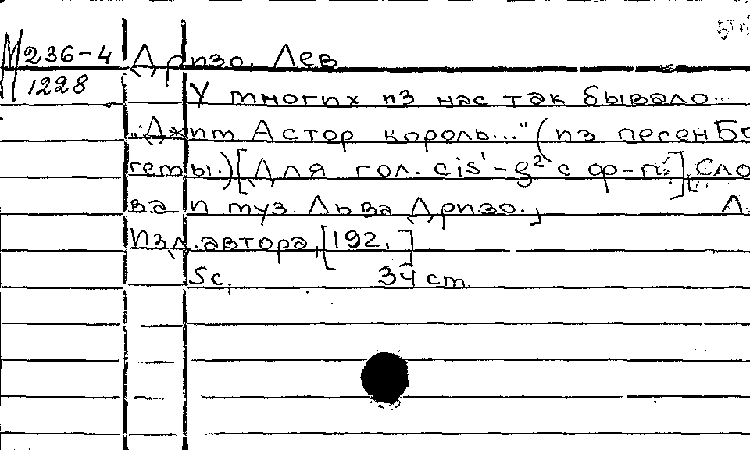 М 236-4 Дризо, Лев
1228
У многих из нас так бывало...
"Джим Астор король..." (из песен Бо
гемы.) [Для гол. cis¹-g² с ф-п.]. Сло
ва и муз. Льва Дризо. Л.
Изд. автора, [192. ]
Sc. 34 cm